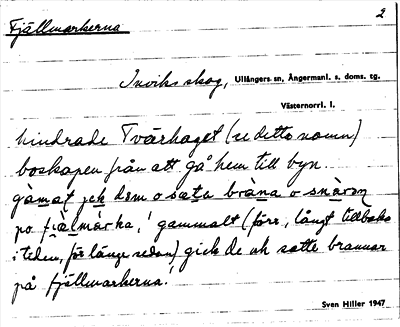 2
Fjällmarkerna
Inviks skog, Ullångers sn, Ångermanl. s. doms. tg.
Västernorrl. l.
hindrade Tvärhaget (se detta namn)
boskapen från att gå hem till byn.
gàmat jek dem o sæta bràna o snàron
po fjælmàrka, ! gammalt (förr, långt tillbaka
i tiden, för länge sedan) gick de och satte brannar
på fjällmarkerna.!
Sven Hiller 1947